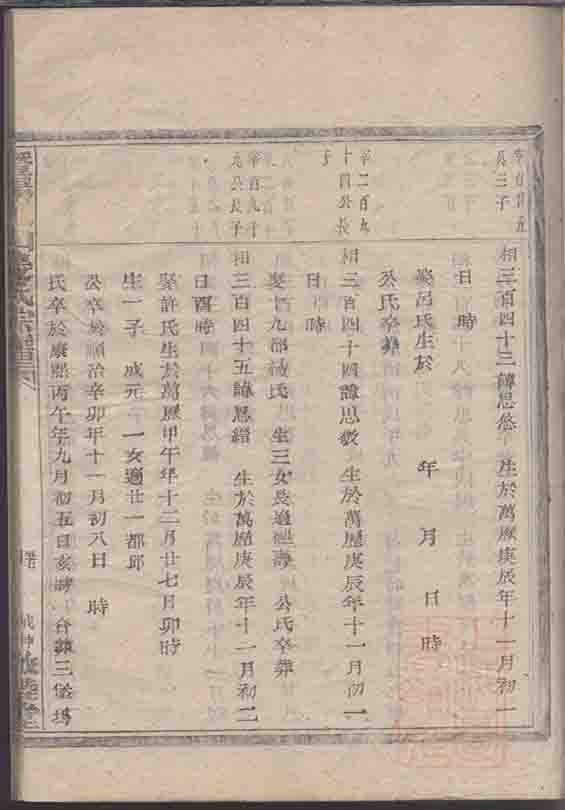 宰百廿五
長三子
相三百四十三諱思悠 生於萬厯庚辰年十一月初一
日 時
娶呂氏生於 年 月 日 時
公氏卒葬
宰二百九
十四公長
子
相三百四十四諱思敦 生於萬厯庚辰年十一月初一
日 時
娶廿九都氏 生三女長適 公氏卒葬
宰百九十
九公長子
相三百四十五諱思縉 生於萬厯庚辰年十一月初二
日酉時
娶許氏生於萬厯甲午年十二月廿七月卯時
生一子 成元 一女適廿一都邱
公卒於順治辛卯年十一月初八日 時
氏卒於康熙丙午年九月初五日亥時 合葬三堡塢
氏宗譜